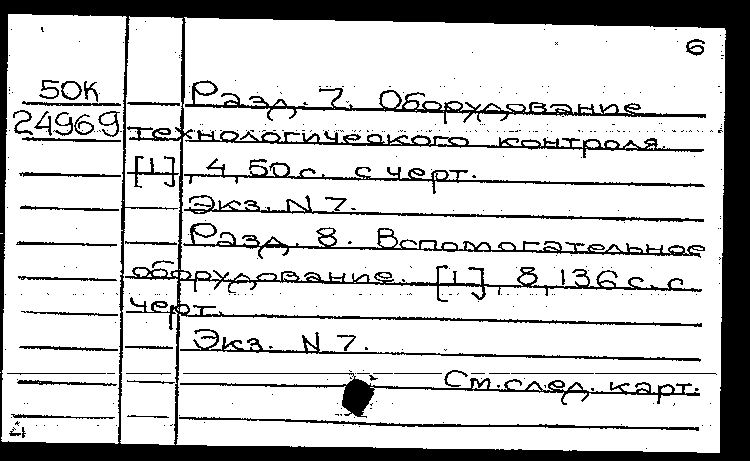 6
50К Разд. 7. Оборудование
24969 технологического контроля.
[1], 4, 50 с. с черт.
Экз. N 7.
Разд. 8. Вспомогательное
оборудование. [1], 8, 136 с. с
черт.
Экз. N 7.
См. след. карт.
4